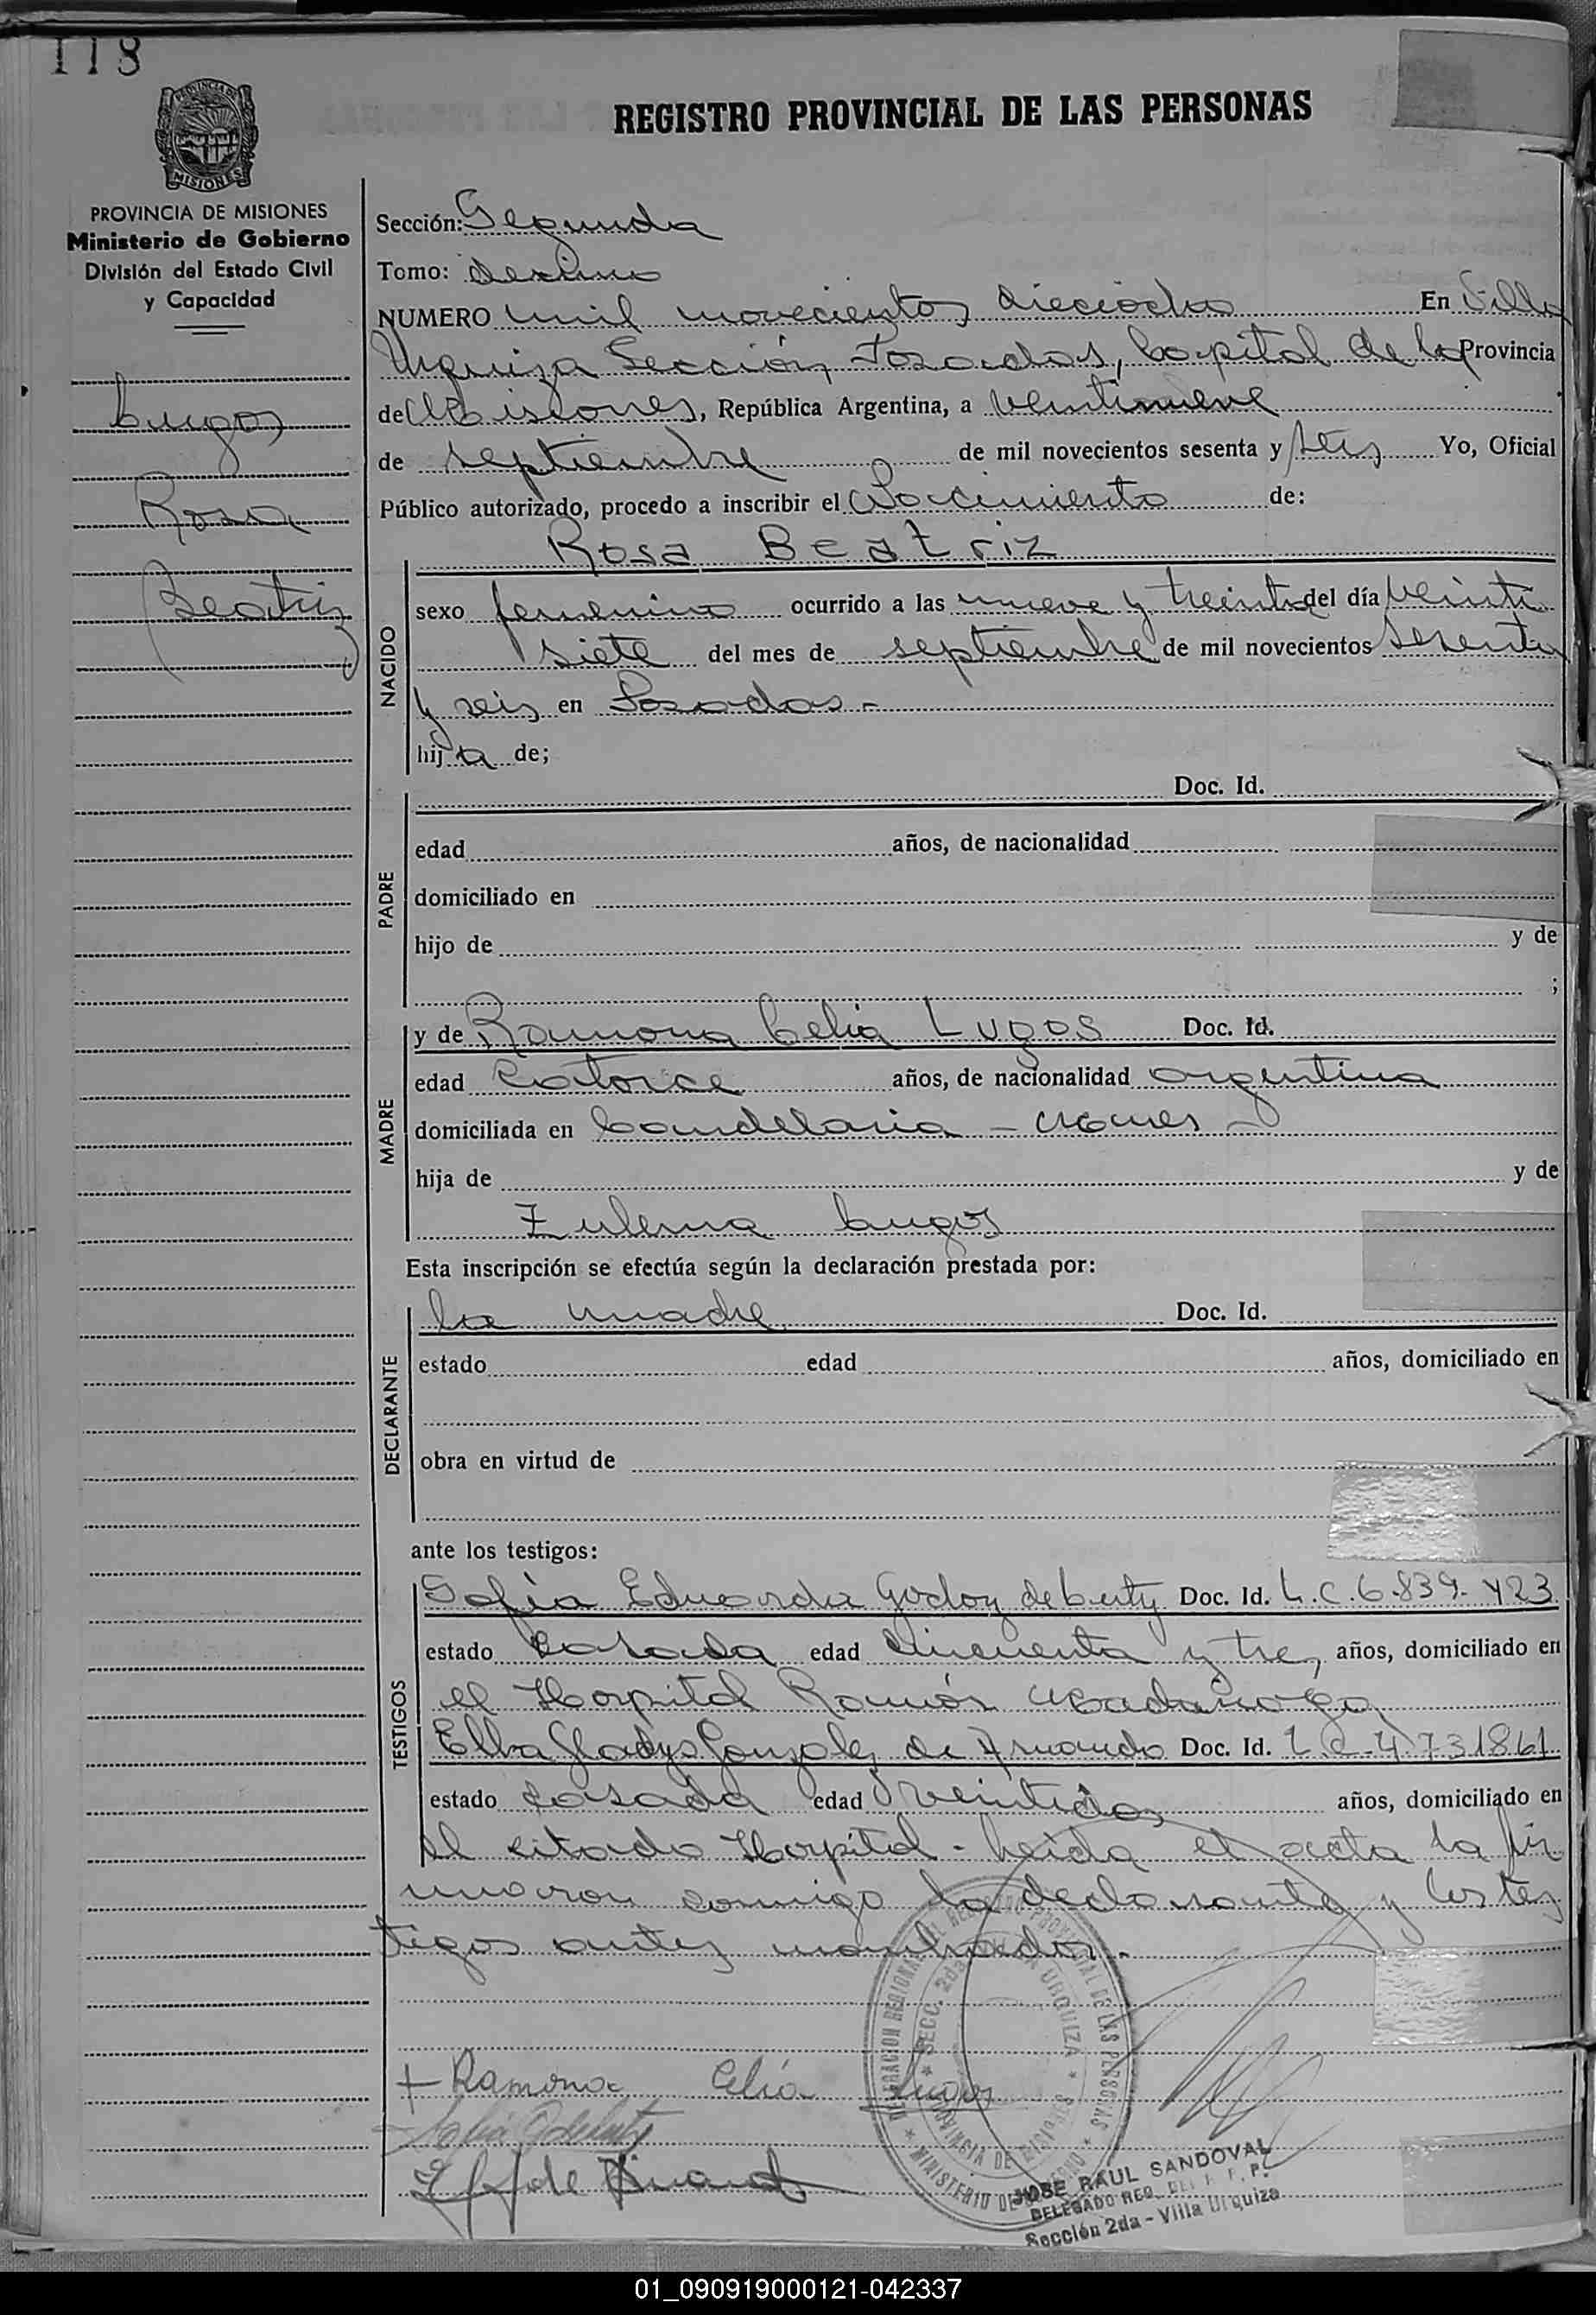 118
PROVINCIA DE
MISIONES
REGISTRO PROVINCIAL DE LAS PERSONAS
PROVINCIA DE MISIONES
Ministerio de Gobierno
División del Estado Civil
y Capacidad
Lugos
Rosa
Beatriz
Sección: Segunda
Tomo: decimo
NUMERO mil novecientos dieciocho En Villa
Urquiza Sección Posadas, Capital de la Provincia
de Misiones, República Argentina, a veintinueve
de septiembre de mil novecientos sesenta y seis Yo, Oficial
Público autorizado, procedo a inscribir el Nacimiento de:
Rosa Beatriz
NACIDO
sexo femenino ocurrido a las nueve y treinta del día veinti
siete del mes de septiembre de mil novecientos sesenta
y seis en Posadas -
hija de;
PADRE
Doc. Id.
edad años, de nacionalidad
domiciliado en
hijo de y de
;
MADRE
y de Ramona Celia Lugos Doc. Id.
edad catorce años, de nacionalidad argentina
domiciliada en Candelaria - Mnes -
hija de y de
Zulema Lugos
Esta inscripción se efectúa según la declaración prestada por:
DECLARANTE
la madre Doc. Id.
estado edad años, domiciliado en
obra en virtud de
ante los testigos:
TESTIGOS
Sofia Eduarda Godoy de Doc. Id. L.C. 6.839.423
estado casada edad cincuenta y tres años, domiciliado en
el Hospital Ramón Madariaga
Elba Gladys Gonzalez de Doc. Id. L.C. 4.731861
estado casada edad veintidos años, domiciliado en
el citado Hospital - Leida el acta la fir
maron conmigo la declarante y los tes
tigos antes nombrados.-
DELEGACION REGIONAL DEL REGISTRO PROVINCIAL DE LAS PERSONAS
SECC. 2da VILLA URQUIZA
PROVINCIA DE MISIONES
MINISTERIO DE GOBIERNO
+ Ramona Celia Lugos
JOSE RAUL SANDOVAL
DELEGADO REG. DEL R. P. P.
Sección 2da - Villa Urquiza
01_090919000121-042337